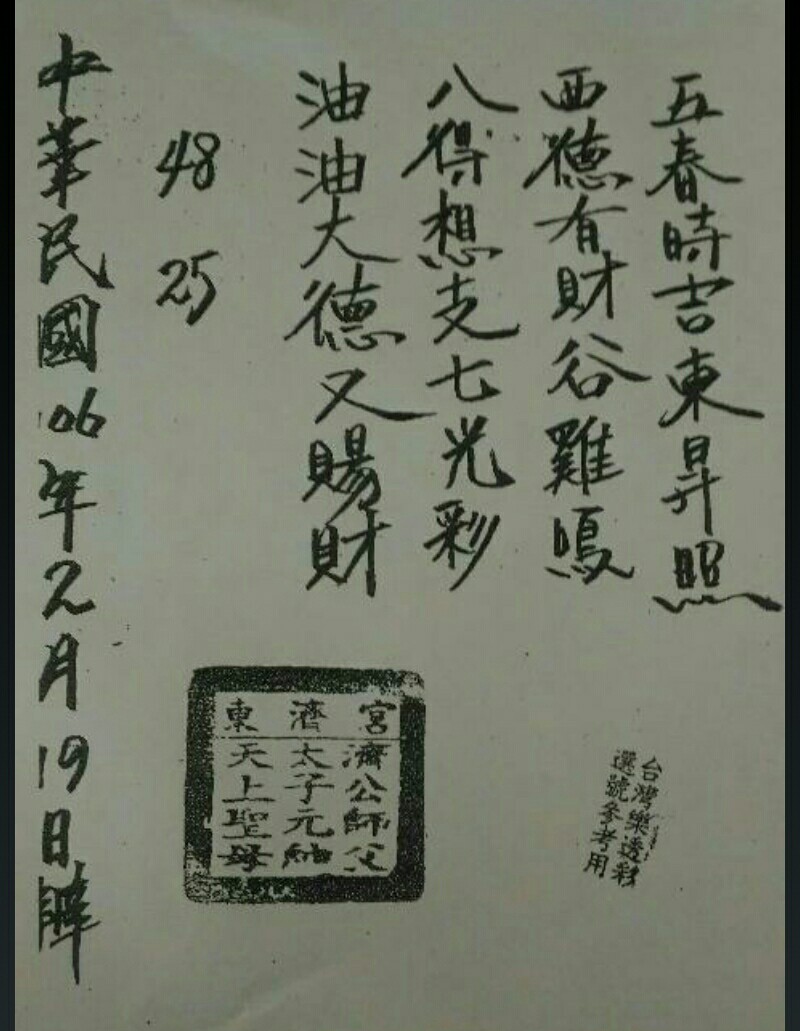 五春時吉東昇照
西德有財谷雞鳴
八得想支七光彩
油油大德又賜財
48 25
中華民國106年2月19日降
東濟宮
濟公師父
太子元帥
天上聖母
台灣樂透彩
選號參考用